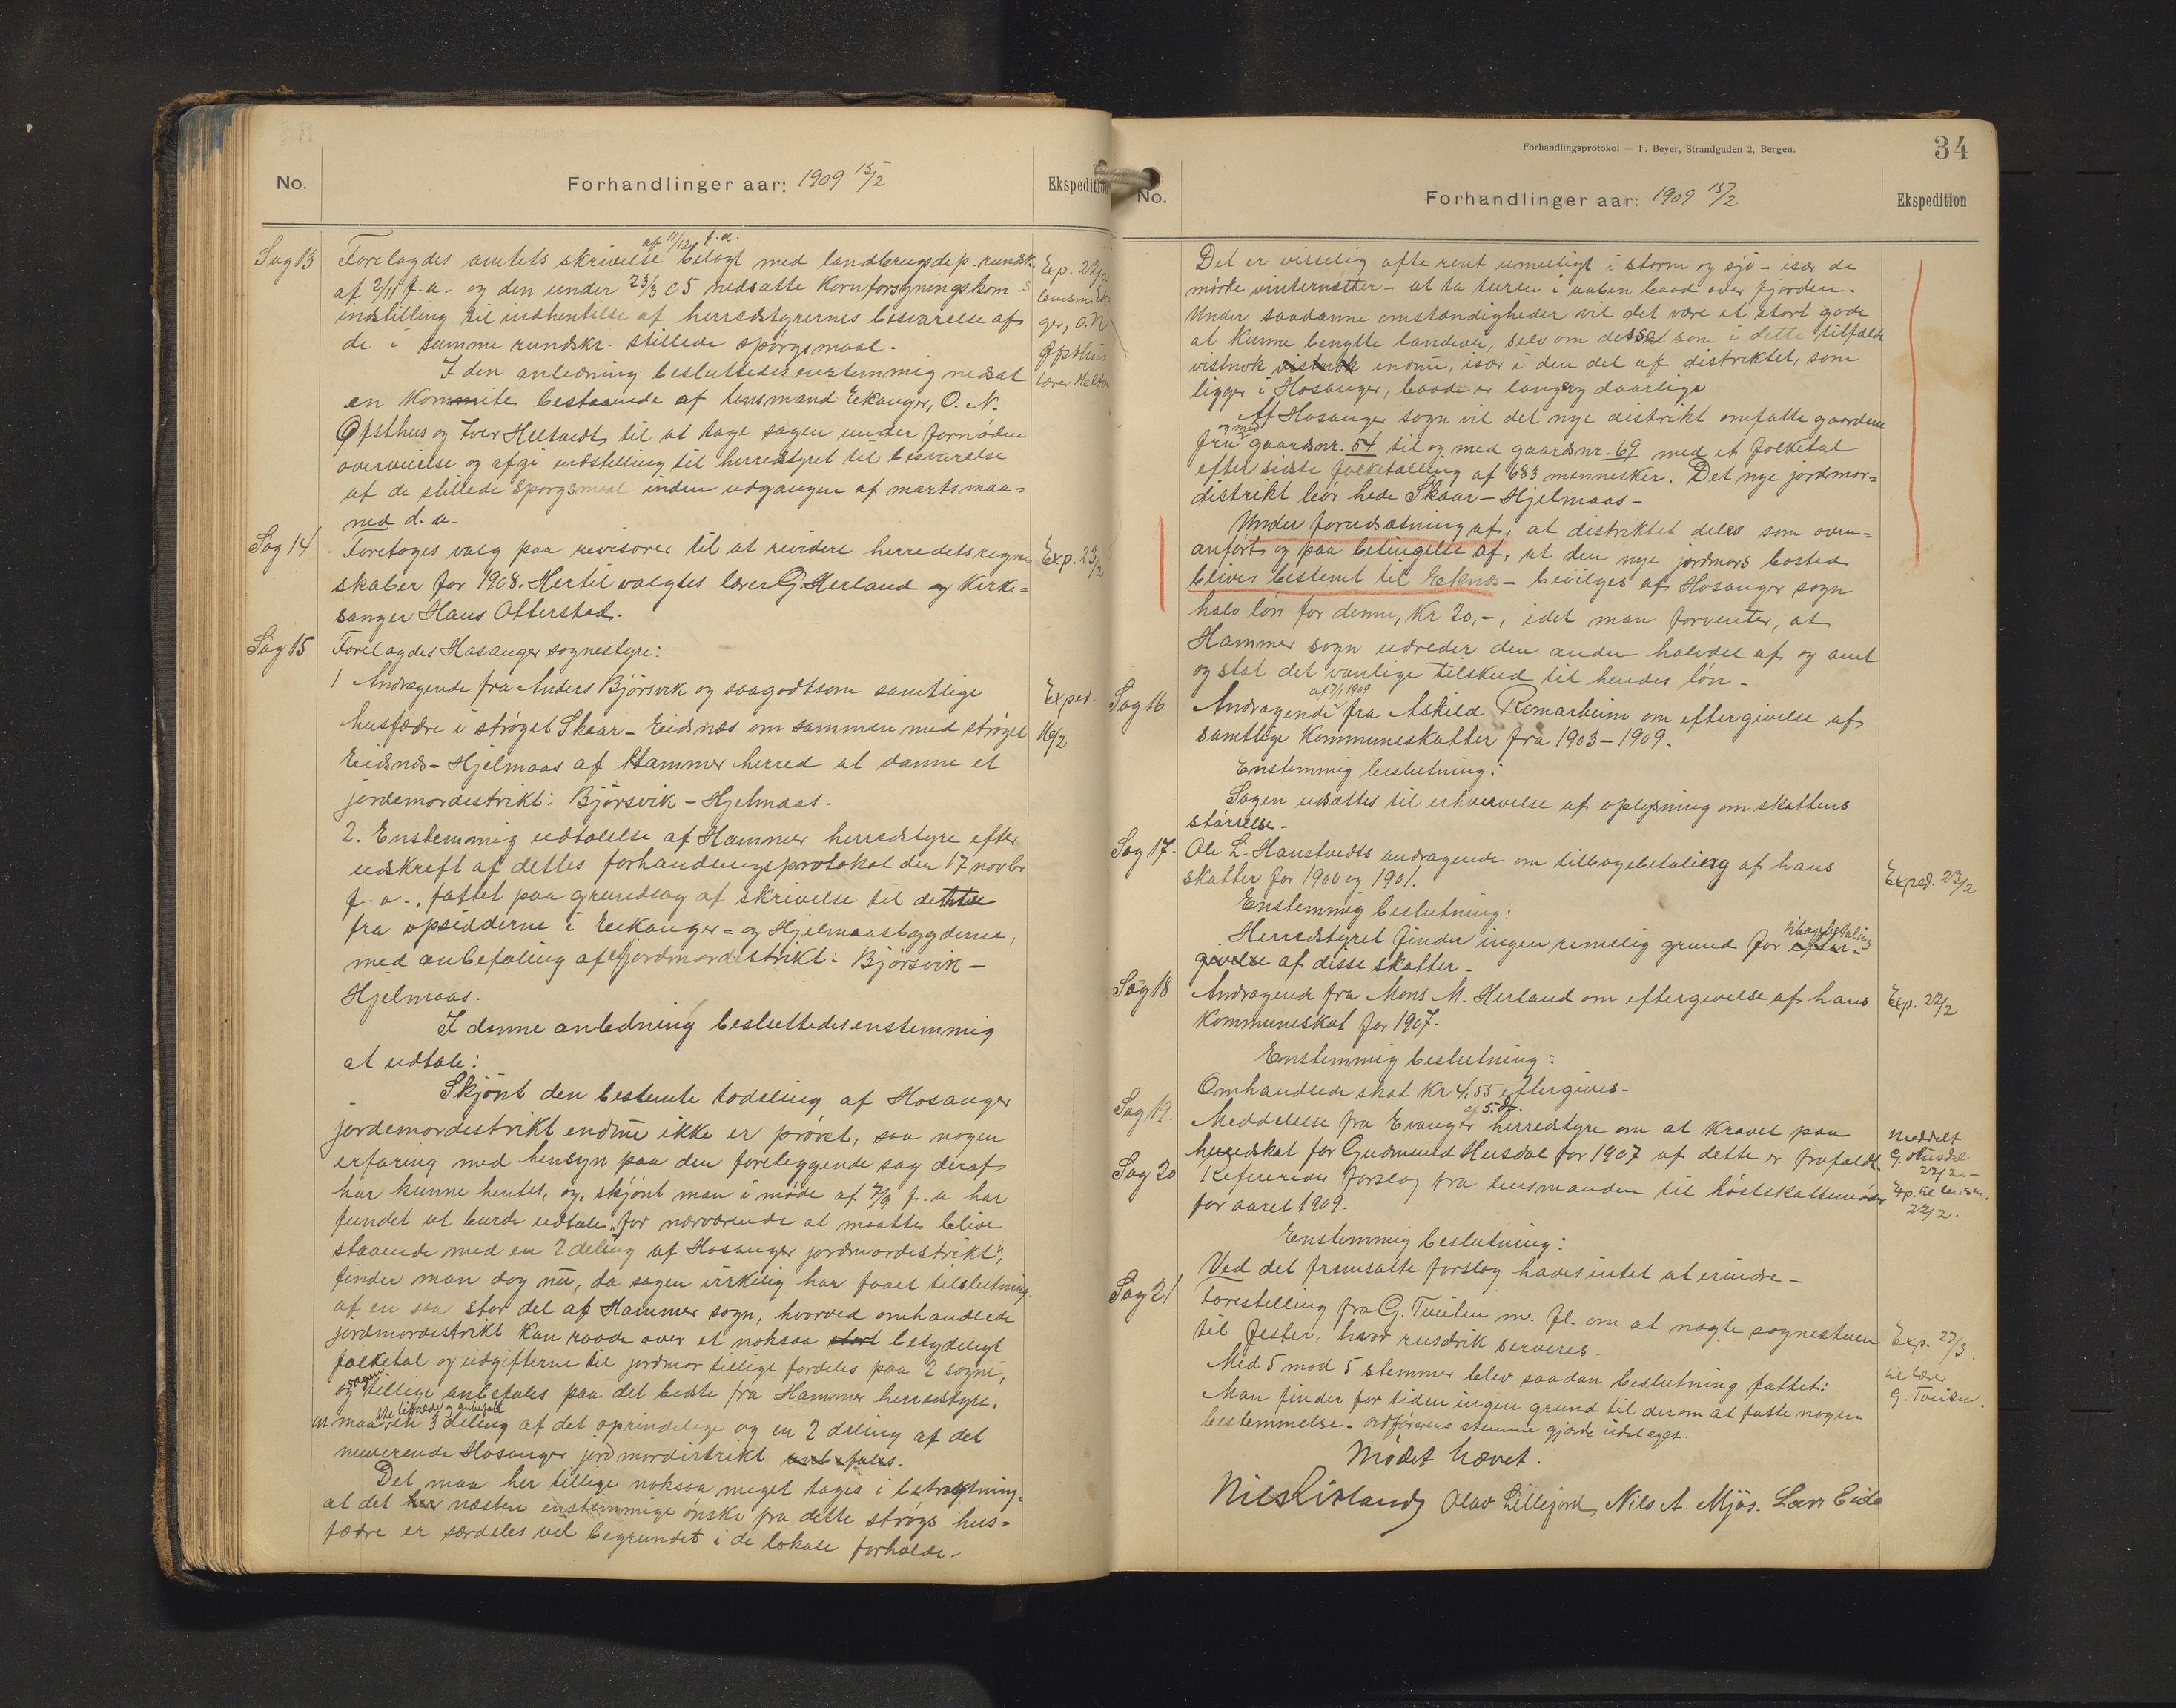 No.
Forhandlinger aar: 1909 15/2
Ekspedition
Sag 13
Forelagdes amtets skrivelse af 11/12 f.a. bilagt med landbrugsdep. rundsk.
af 2/11 f.a. og den under 23/3 05 nedsatte Kornforsyningskom.s
indstilling til indhentelse af herredstyrernes besvarelse af
de i samme rundskr. stillede spørgsmaal.
I den anledning besluttedes enstemmig nedsat
en Kommite bestaaende af lensmand Eekanger, O. N.
Opsthus og Iver Heltvedt til at tage sagen under fornøden
overveielse og afgi indstilling til herredstyret til besvarelse
af de stillede spørgsmaal inden udgangen af martsmaa=
ned d.a.
Exp. 22/2
lensm. Ek
ger, O.N
Opsthus
lærer Heltv
Sag 14
Foretoges valg paa revisorer til at revidere herredets regn=
skaber for 1908. Hertil valgtes lærer G. Herland og Kirke=
sanger Hans Otterstad.
Exp. 23/2
Sag 15
Forelagdes Hosanger sognestyre:
1 Andragende fra Anders Bjørsvik og saagodtsom samtlige
husfædre i strøget Skaar - Eidsnæs om sammen med strøget
Eidsnæs - Hjelmaas af Hammer herred at danne et
jordemordistrikt: Bjørsvik - Hjelmaas.
Exped.
16/2
2. Enstemmig udtalelse af Hammer herredstyre efter
udskrift af dettes forhandlingsprotokol den 17 novbr
f.a., fattet paa grundlag af skrivelse til dette
fra opsidderne i Eekanger= og Hjelmaasbygderne,
med anbefaling af et jordmordistrikt: Bjørsvik -
Hjelmaas.
I denne anledning besluttedes enstemmig
at udtale:
Skjønt den bestemte todeling af Hosanger
jordemordistrikt endnu ikke er prøvet, saa nogen
erfaring med hensyn paa den foreliggende sag deraf
har kunne hentes, og, skjønt man i møde af 7/9 f.a har
fundet at burde udtale "for nærværende at maatte blive
staaende med en 2 deling af Hosanger jordmordistrikt",
finder man dog nu, da sagen virkelig har faaet tilslutning
af en saa stor del af Hammer sogn, hvorved omhandlede
jordmordistrikt kan raade over et noksaa stort betydeligt
folketal og udgifterne til jordmor tillige fordeles paa 2 sogne,
og sagen tillige anbefales paa det bedste fra Hammer herredstyre,
at maa en 3 deling af det oprindelige og en 2 deling af det
nuværende Hosanger jordmordistrikt anbefales.
Det maa her tillige noksaa meget tages i betragtning,
at det her næsten enstemmige ønske fra dette strøgs hus=
fædre er særdeles vel begrundet i de lokale forholde.
Forhandlingsprotokol — F. Beyer, Strandgaden 2, Bergen.
34
No.
Forhandlinger aar: 1909 15/2
Ekspedition
Det er visselig ofte rent umuligt i storm og sjø - især de
mørke vinternætter - at ta turen i aaben baad over fjorden.
Under saadanne omstændigheder vil det være et stort gode
at kunne benytte landevei, selv om som i dette tilfælde
vistnok vistnok endnu, især i den del af distriktet, som
ligger i Hosanger, baade er lang og daarlig.
Af Hosanger sogn vil det nye distrikt omfatte gaardene
fra og med gaardsnr. 54 til og med gaardsnr. 69 med et folketal
efter sidste folketælling af 683 mennesker. Det nye jordmor=
distrikt bør hede Skaar - Hjelmaas -
Under forudsætning af, at distriktet deles som oven=
anført og paa betingelse af, at den nye jordmors bosted
blives bestemt til Eknes - bevilges af Hosanger sogn
halv løn for denne, Kr 20,-, idet man forventer, at
Hammer sogn udreder den anden halvdel af og amt
og stat det vanlige tilskud til hendes løn -
Sag 16
Andragende af 7/1 1909 fra Askild Romarheim om eftergivelse af
samtlige Kommuneskatter fra 1903 - 1909.
Enstemmig beslutning:
Sagen udsættes til erhvervelse af oplysning om skattens
størrelse.
Sag 17.
Ole L. Hanstvedts andragende om tilbagebetaling af hans
skatter for 1900 og 1901.
Exped. 23/2
Enstemmig beslutning:
Herredstyret finder ingen rimelig grund for tilbagebetaling efter=
givelse af disse skatter.
Sag 18
Andragende fra Mons M. Herland om eftergivelse af hans
kommuneskat for 1907.
Exp. 22/2
Enstemmig beslutning:
Omhandlede skat kr 4,55 eftergives.
Sag 19.
Meddelelse fra Evanger herredstyre om at kravet paa
herredskat for Gudmund Husdal for 1907 af dette er frafaldt.
Meddelt
G. Husdal
22/2.-
Sag 20
Refereredes forslag fra lensmanden til høstskattemøder
for aaret 1909.
Exp. til lensm.
22/2.
Enstemmig beslutning:
Ved det fremsatte forslag haves intet at erindre -
Sag 21
Forestilling fra G. Tveiten m. fl. om at nægte sognestuen
til fester, hvor rusdrik serveres.
Exp. 27/3.
til lærer
G. Tveiten.
Med 5 mod 5 stemmer blev saadan beslutning fattet:
Man finder for tiden ingen grund til derom at fatte nogen
bestemmelse. Ordførerens stemme gjorde udslaget.
Mødet hævet.
Nils Risland Olav Lillejord, Nils A. Mjøs. Lars Eide